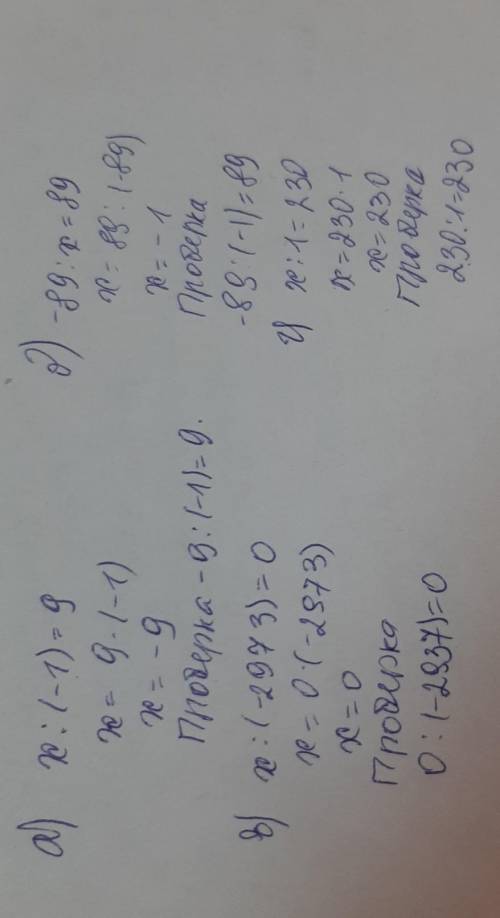 а) x : (-1) = 9
x = 9 · (-1)
x = -9
Проверка -9 : (-1) = 9.
б) -89 : x = 89
x = 89 : (-89)
x = -1
Проверка
-89 : (-1) = 89
в) x : (-2973) = 0
x = 0 · (-2973)
x = 0
Проверка
0 : (-2937) = 0
г) x : 1 = 230
x = 230 · 1
x = 230
Проверка
230 : 1 = 230